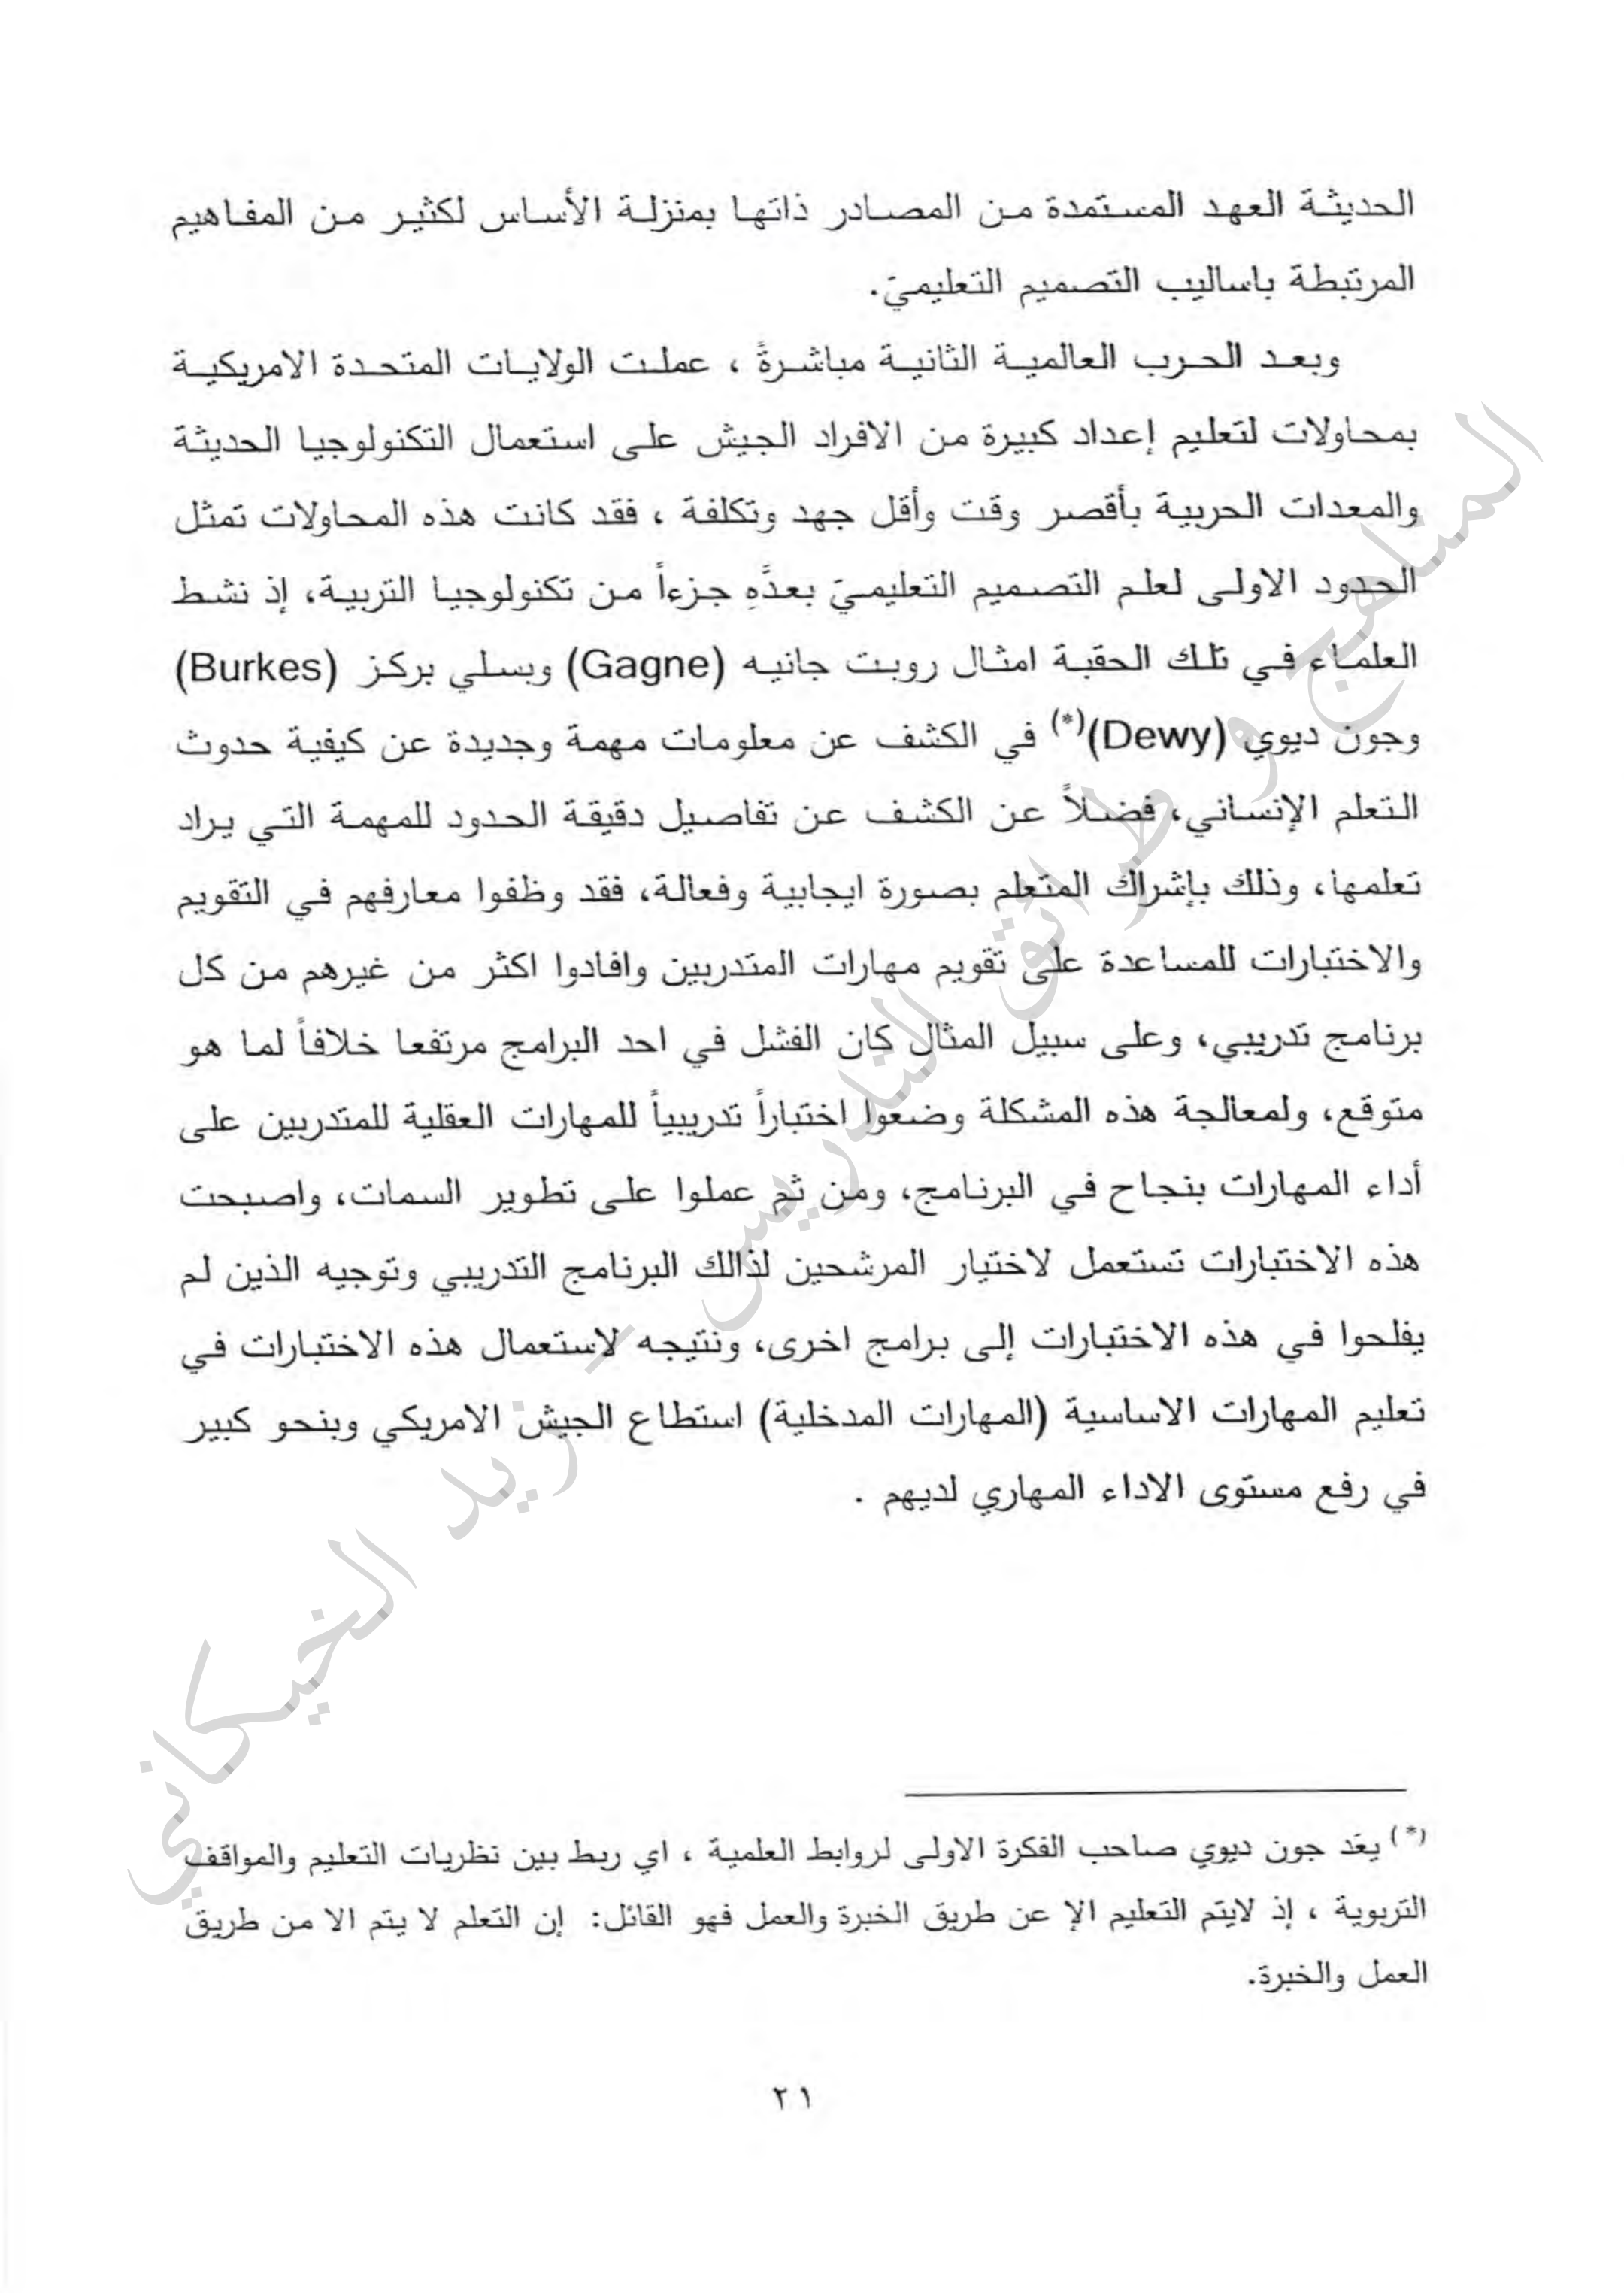 الحديثة العهد المستمدة من المصادر ذاتها بمنزلة الأساس لكثير من المفاهيم
المرتبطة باساليب التصميم التعليميّ.
وبعد الحرب العالمية الثانية مباشرةً ، عملت الولايات المتحدة الامريكية
بمحاولات لتعليم إعداد كبيرة من الافراد الجيش على استعمال التكنولوجيا الحديثة
والمعدات الحربية بأقصر وقت وأقل جهد وتكلفة ، فقد كانت هذه المحاولات تمثل
الحدود الاولى لعلم التصميم التعليميّ بعدَّهِ جزءاً من تكنولوجيا التربية، إذ نشط
العلماء في تلك الحقبة امثال روبت جانيه (Gagne) وبسلي بركز (Burkes)
وجون ديوي (Dewy)(*) في الكشف عن معلومات مهمة وجديدة عن كيفية حدوث
التعلم الإنساني، فضلاً عن الكشف عن تفاصيل دقيقة الحدود للمهمة التي يراد
تعلمها، وذلك بإشراك المتعلم بصورة ايجابية وفعالة، فقد وظفوا معارفهم في التقويم
والاختبارات للمساعدة على تقويم مهارات المتدربين وافادوا اكثر من غيرهم من كل
برنامج تدريبي، وعلى سبيل المثال كان الفشل في احد البرامج مرتفعا خلافاً لما هو
متوقع، ولمعالجة هذه المشكلة وضعوا اختباراً تدريبياً للمهارات العقلية للمتدربين على
أداء المهارات بنجاح في البرنامج، ومن ثم عملوا على تطوير السمات، واصبحت
هذه الاختبارات تستعمل لاختيار المرشحين لذالك البرنامج التدريبي وتوجيه الذين لم
يفلحوا في هذه الاختبارات إلى برامج اخرى، ونتيجه لاستعمال هذه الاختبارات في
تعليم المهارات الاساسية (المهارات المدخلية) استطاع الجيش الامريكي وبنحو كبير
في رفع مستوى الاداء المهاري لديهم .
(*) يعّد جون ديوي صاحب الفكرة الاولى لروابط العلمية ، اي ربط بين نظريات التعليم والمواقف
التربوية ، إذ لايتم التعليم الإ عن طريق الخبرة والعمل فهو القائل: إن التعلم لا يتم الا من طريق
العمل والخبرة.
٢١
المناهج و طرائق التدريس - زيد الخيكاني